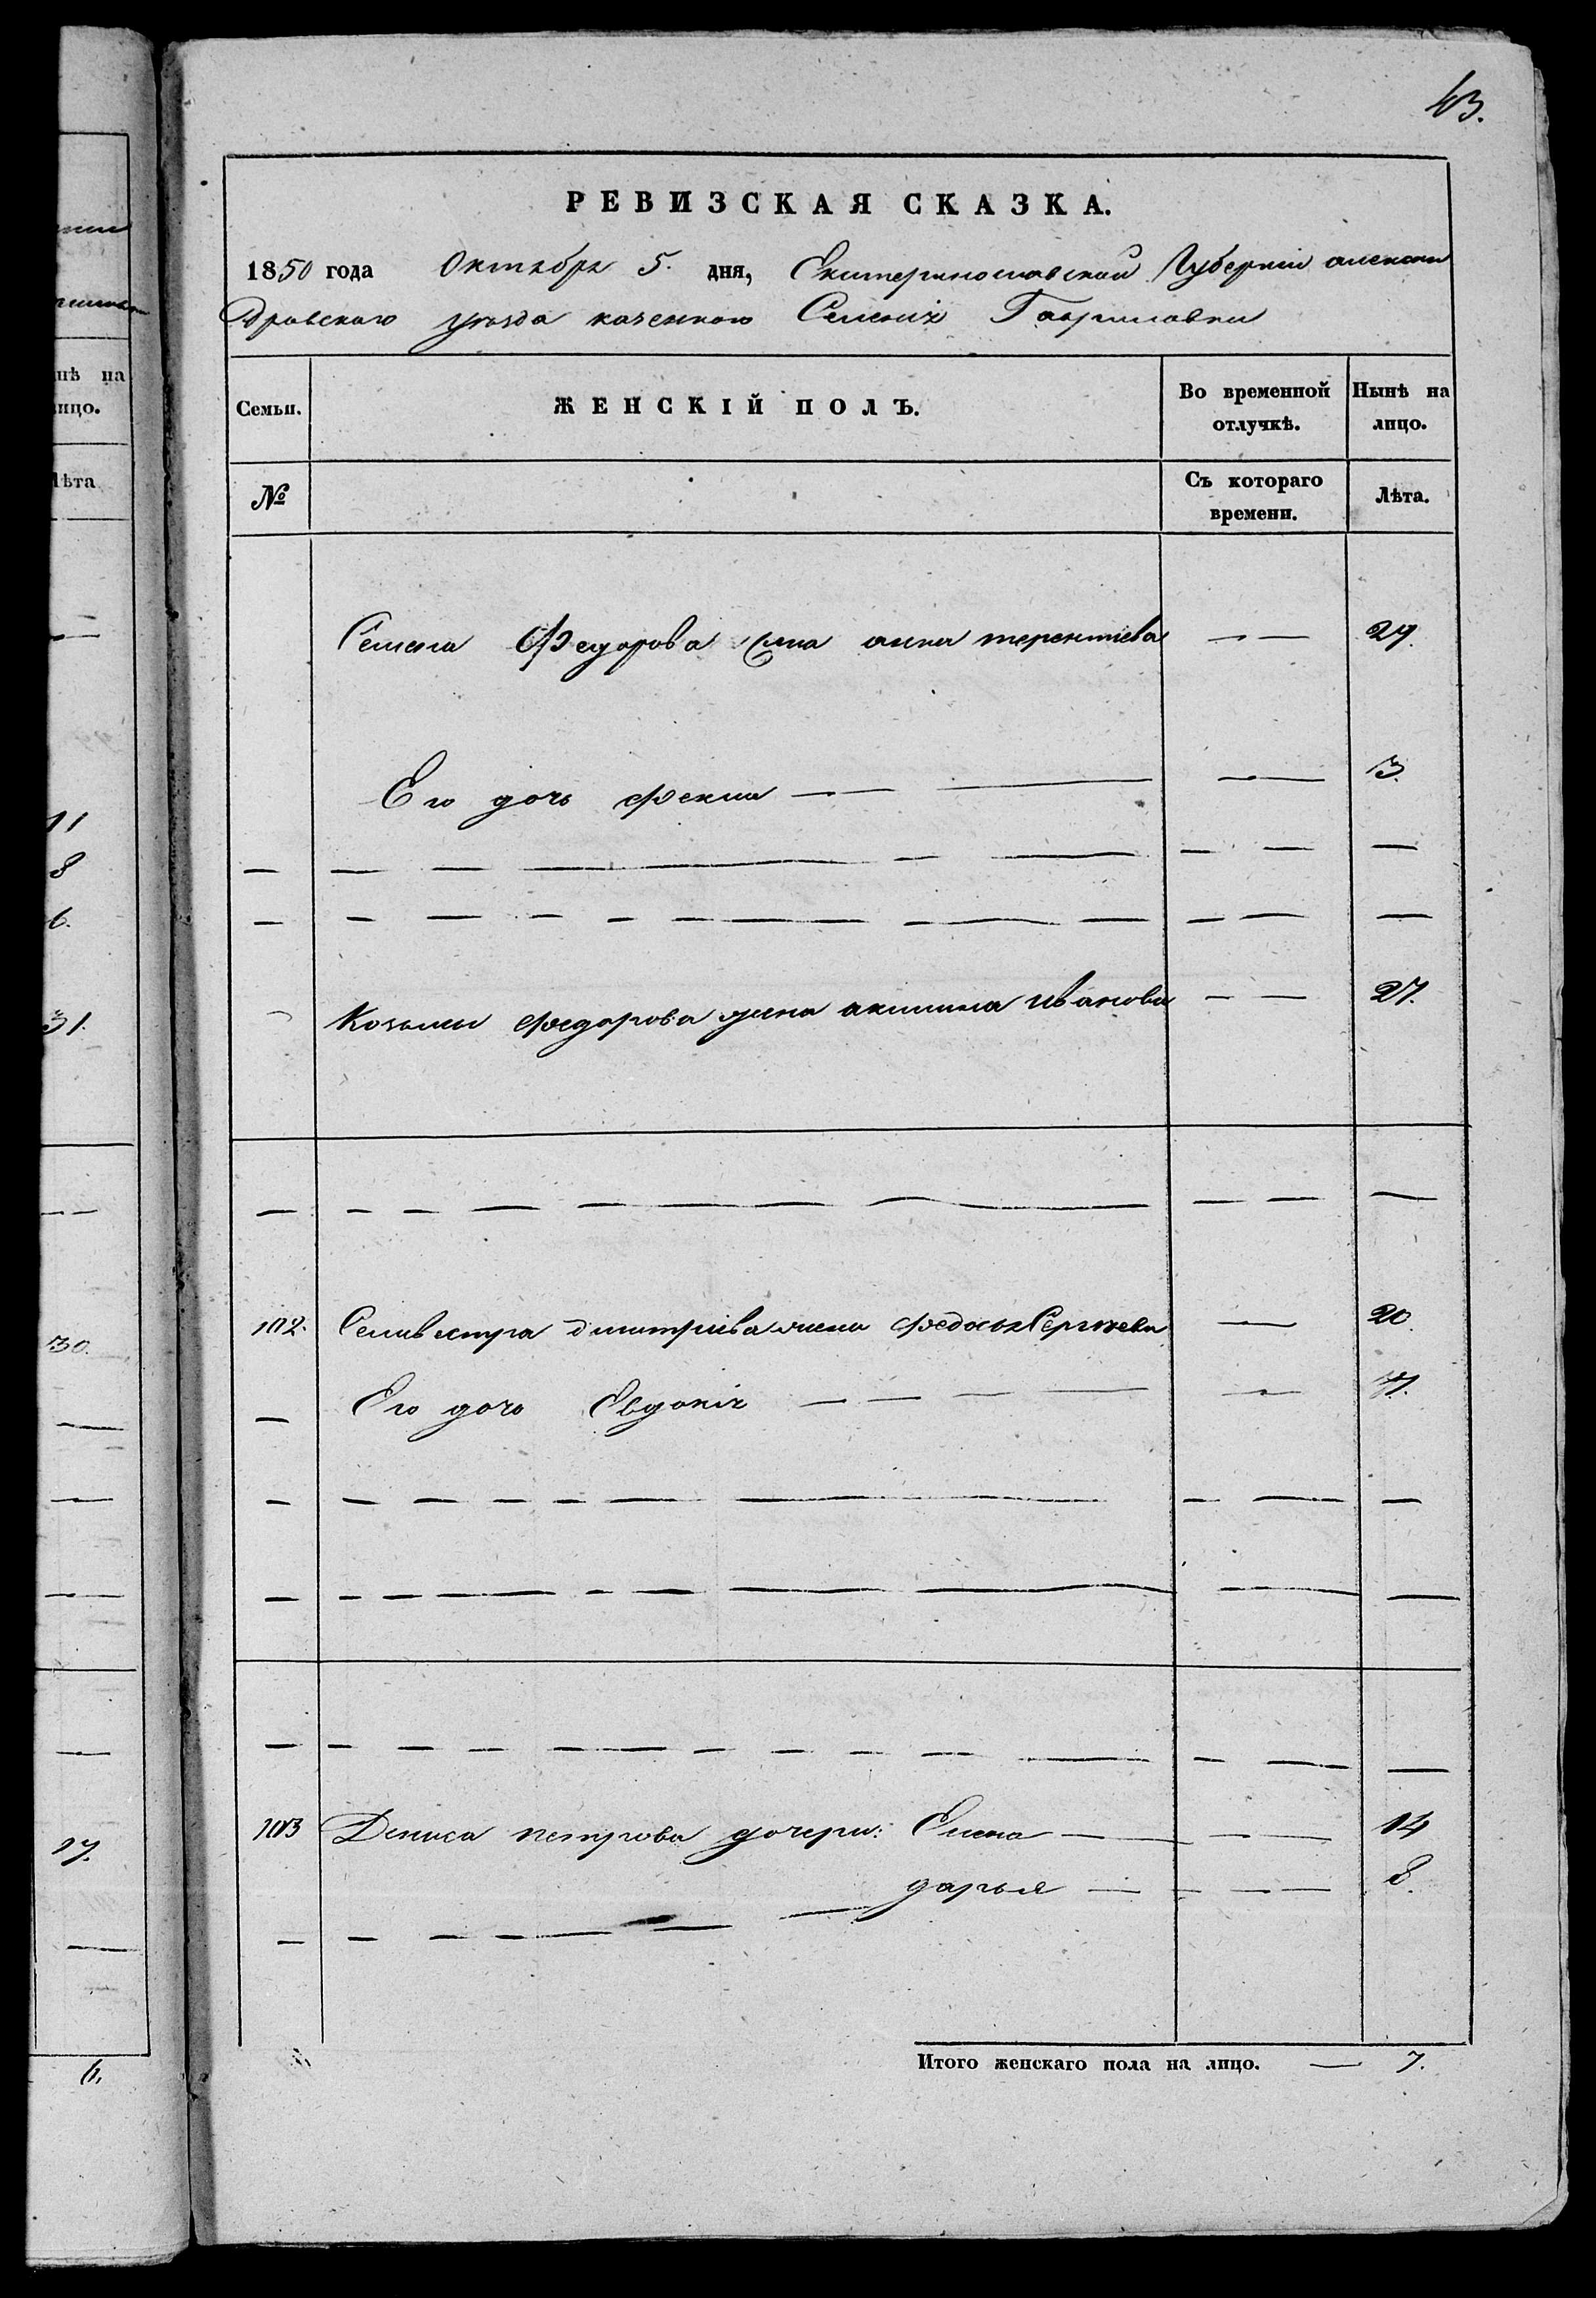 43.
РЕВИЗСКАЯ СКАЗКА.
1850 года Октября 5. дня, Екатеринославской Губерніи алексан
дровскаго уѣзда казеннаго Селенія Гавриловки
Семьи.
ЖЕНСКІЙ ПОЛЪ.
Во временной отлучкѣ.
Нынѣ на лицо.
№
Съ котораго времени.
Лѣта.
Семена Федорова жена анна терентіева — — 29.
Его дочь Фекла — — — — — 3.
Козьмы федорова жена акилина Иванова — — 27.
102. Селивестра дмитріева жена федосья Сергѣева — 20.
Его дочь Евдокія — — — — —
103 Дениса петрова дочери: Елена — — — 14
дарья — — — — 8.
Итого женскаго пола на лицо. — 7.
нѣ на
ицо.
лѣта
11
8
6.
31.
30.
17.
6.